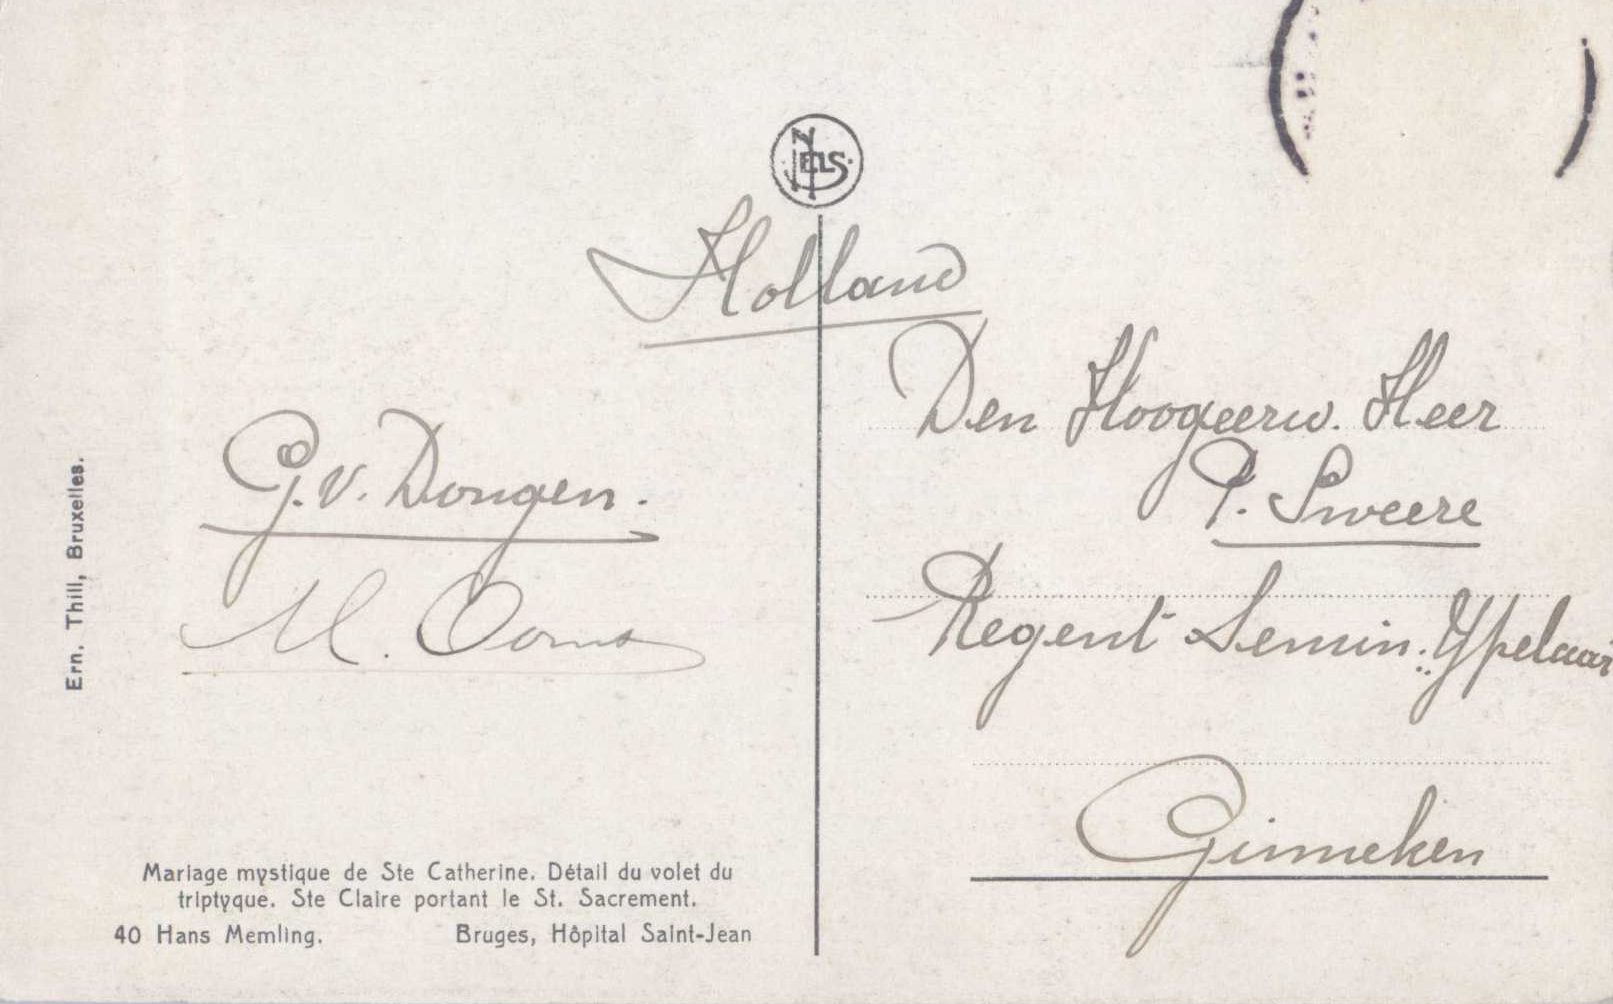 NELS
Holland
Den Hoogeerw. Heer
P. Sweere
Regent Semin. Ypelaar
Ginneken
G. v. Dongen.
M. Ooms
Ern. Thill, Bruxelles.
Mariage mystique de Ste Catherine. Détail du volet du
triptyque. Ste Claire portant le St. Sacrement.
40 Hans Memling. Bruges, Hôpital Saint-Jean